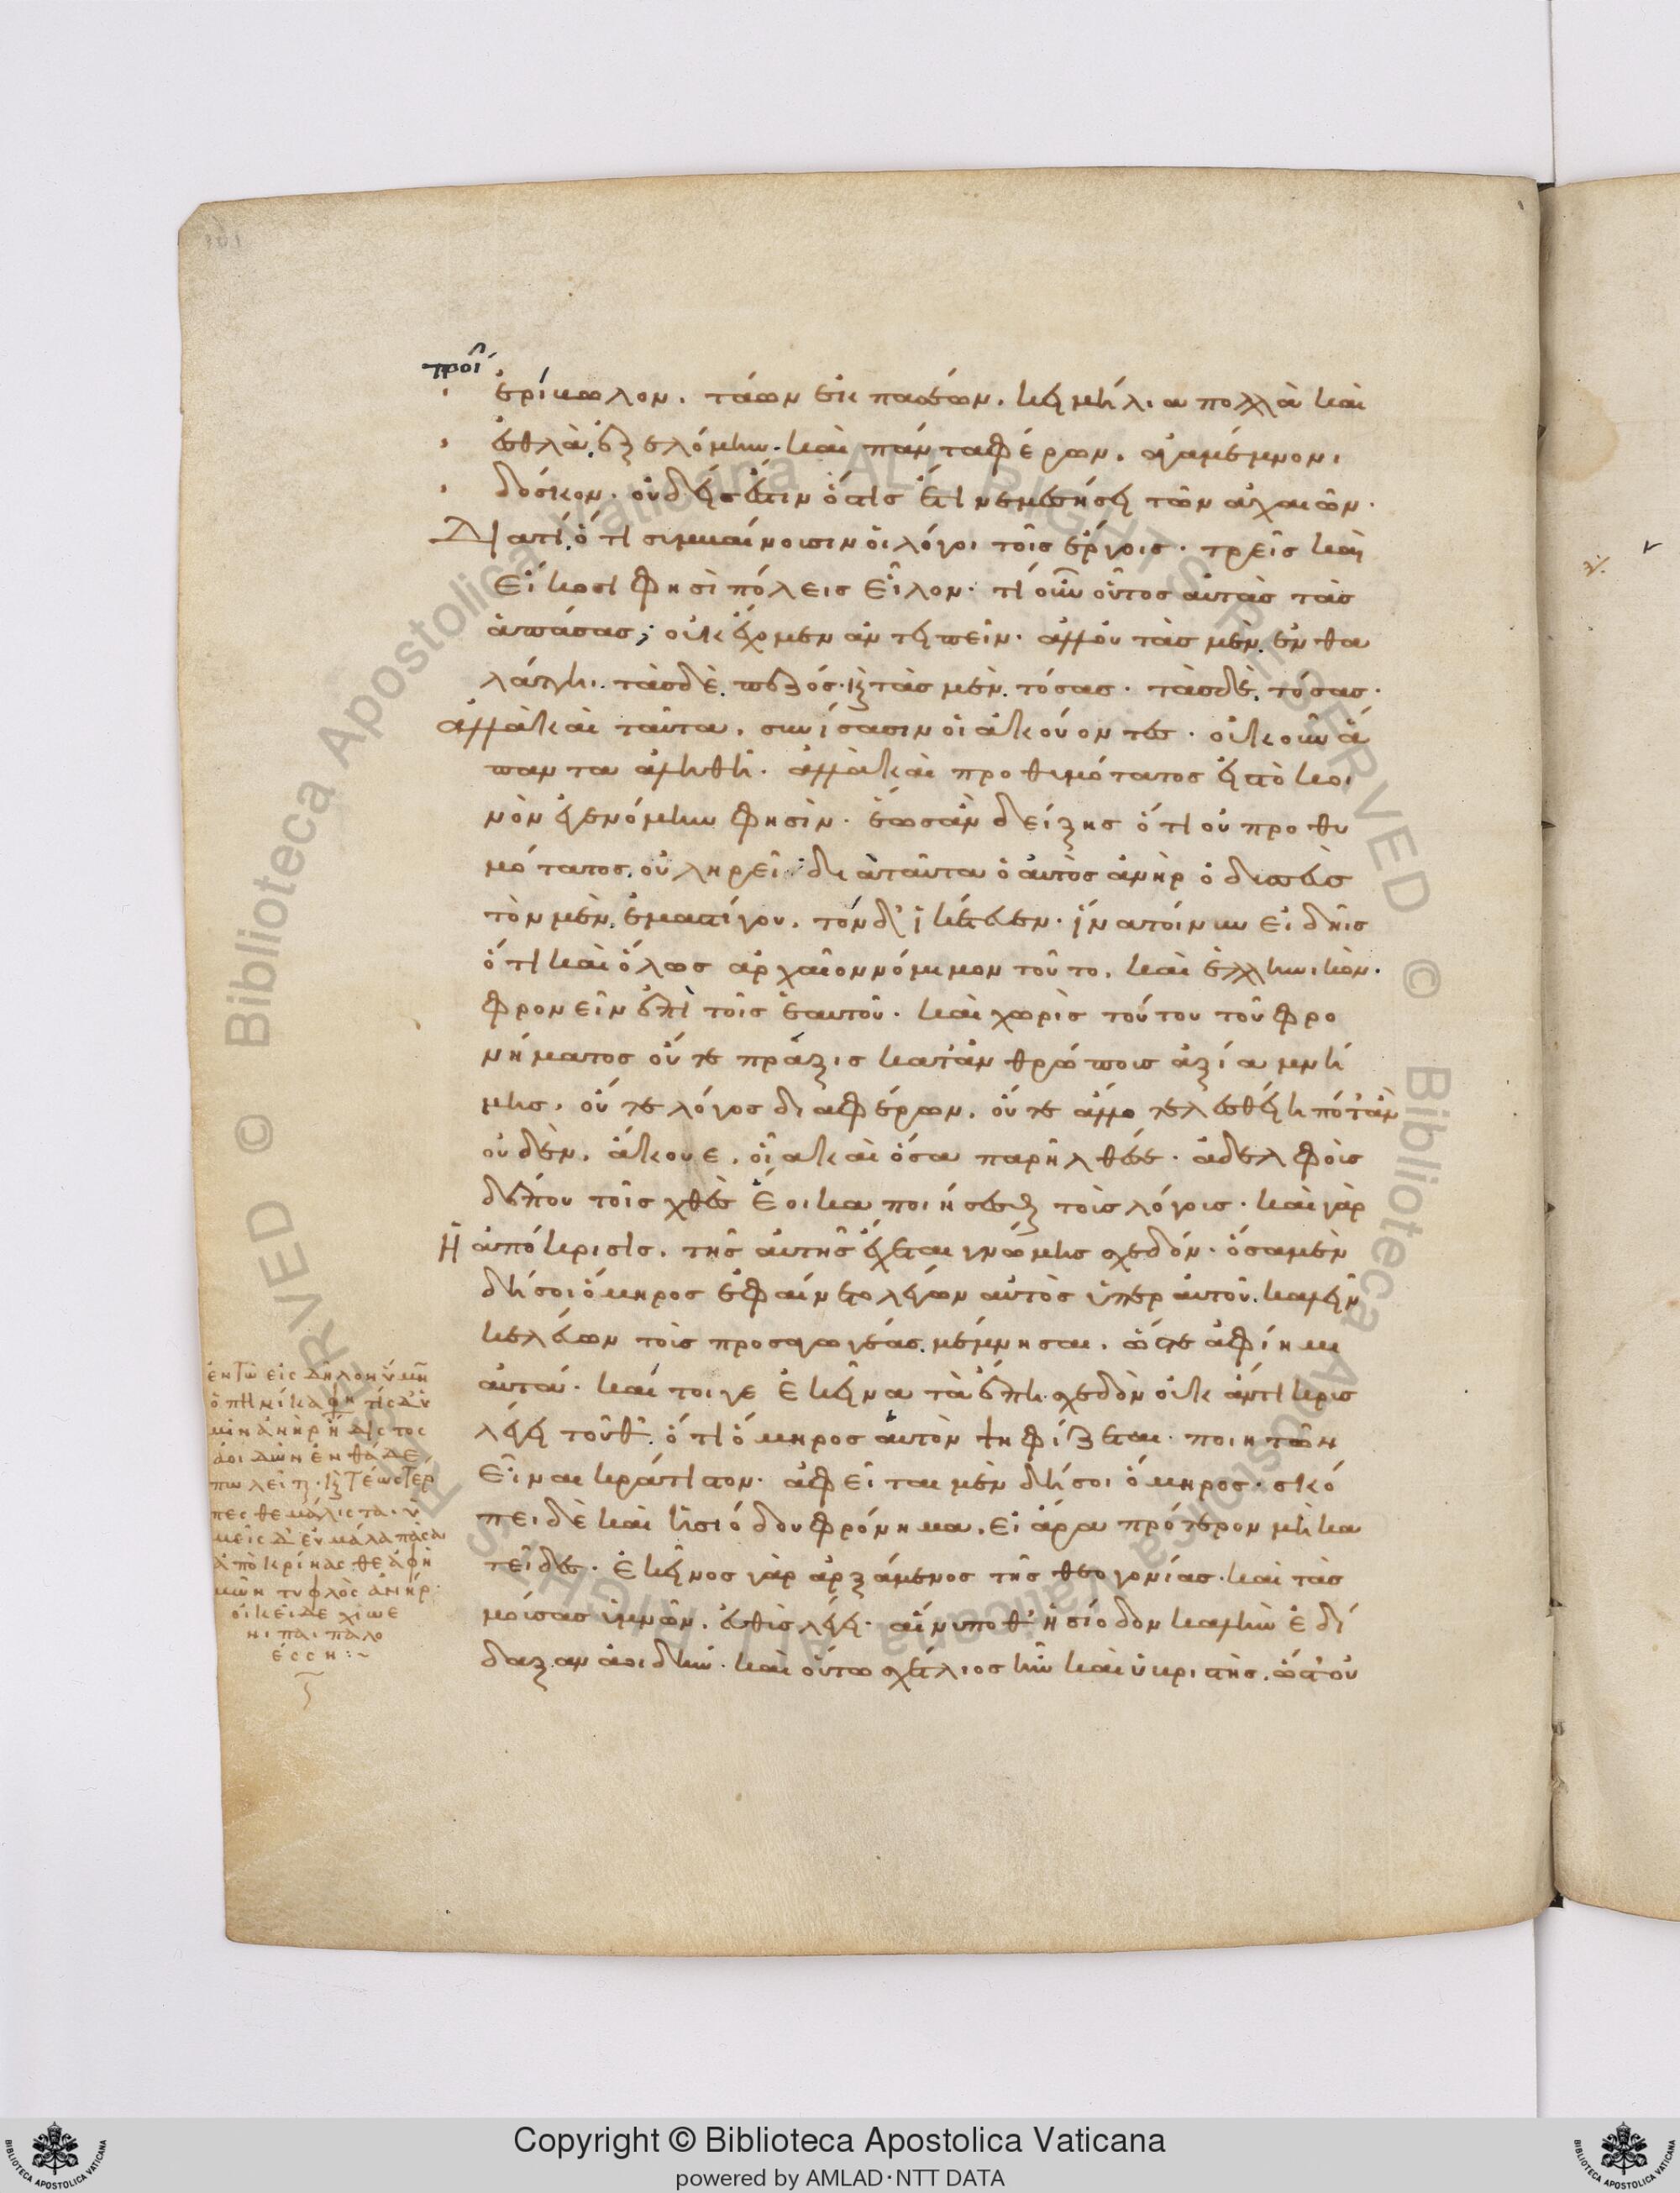 τροί
ἐρίβωλον. τάων ἐκ πασέων. κειμήλια πολλὰ καὶ
ἐσθλὰ. ἐξελόμην. καὶ πάντα φέρων. ἀγαμέμνονι
δόσκον. οὐδείς ἐστιν ὅστις ἔτι νεμεσήσει τῶν ἀχαιῶν.
Διατί. ὅτι συμβαίνουσιν οἱ λόγοι τοῖς ἔργοις. τρεῖς καὶ
εἴκοσί φησὶ πόλεις εἷλον. τί οὖν οὗτος αὐτὰς τὰς
ἁπάσας; οὐκ ἔχομεν ἀντειπεῖν. ἀλλ' οὐ τὰς μὲν. ἐν θα
λάττῃ. τὰς δὲ. πεζός. καὶ τὰς μὲν. τόσας. τὰς δὲ. τόσας.
ἀλλὰ καὶ ταῦτα. συνίσασιν οἱ ἀκούοντες. οὐκοῦν ἅ
παντα ἀληθῆ. ἀλλὰ καὶ προθυμότατος εἰς τὸ κοι
νὸν γενόμην φησὶν. ἕως ἂν δείξῃς ὅτι οὐ προθυ
μότατος. οὐ ληρεῖ. διὰ ταῦτα ὁ αὐτὸς ἀνὴρ ὀδυσσέως
τὸν μὲν. ἐμαστίγου. τὸν δ' ἱκέτευεν. ἵνα τοίνυν εἰδῇς
ὅτι καὶ ὅλως ἀρχαῖον νόμιμον τοῦτο. καὶ ἑλληνικὸν.
φρονεῖν ἐπὶ τοῖς ἑαυτοῦ. καὶ χωρὶς τούτου τοῦ φρο
νήματος οὔτε πρᾶξις κατ' ἀνθρώπους ἀξία μνή
μης. οὔτε λόγος διαφέρων. οὔτε ἄλλο τελεσθείη πότ' ἂν
οὐδὲν. ἄκουε. οἷα καὶ ὅσα παρῆλθές σε. ἀδελφοῖς
δέπου τοῖς χθὲς ἔοικα ποιήσεσθαι τοὶς λόγοις. καὶ γὰρ
ἡ ἀπόκρισις. τῆς αὐτῆς ἔχεται γνώμης σχεδόν. ὅσα μὲν
δή σοι ὅμηρος ἐφαίνετο λέγων αὐτὸς ὑπὲρ αὐτοῦ. κἀμεῖν
κελεύων τοὶς προσαγωγέας. μέμνησαι. ὥστε ἀφίημι
αὐτά. καί τοι γε ἐκεῖνα τὰ ἔπη. σχεδὸν οὐκ ἄντικρυς
λέγει τοῦθ'. ὅτι ὅμηρος αὐτὸν ψηφίζεται. ποιητῶν
εἶναι κράτιστον. ἀφεῖται μὲν δή σοι ὅμηρος. σκό
πει δὲ καὶ ἡσιόδου φρόνημα. εἰ ἄρα πρότερον μὴ κα
τεῖδες. ἐκεῖνος γὰρ ἀρξάμενος τῆς θεογονίας. καὶ τὰς
μούσας ὑμνῶν. εὐθὺς λέγει. αἵ νυ ποθ' ἡσίοδον καλὴν ἐδί
δαξαν ἀοιδήν. καὶ οὕτω σχέτλιος ἦν καὶ ὑβριστὴς. ὥστ' οὐ
ἐν τῶ εἰς δῆλον ὕμν
ὁπηνίκα φη τίς δ' ὔ
μιν ἀνὴρ ἥδιστος
ἀοιδῶν ἐνθάδε
πωλεῖται. καὶ τέωι τέρ
πεσθε μάλιστα. ὑ
μεῖς δ' εὖ μάλα πᾶσαι
ἀποκρίνασθε ἀφ' ἡ
μῶν τυφλὸς ἀνήρ.
οἰκεῖ δὲ χίωι ἔ
νι παιπαλο
έσσῃ:~
Copyright © Biblioteca Apostolica Vaticana
powered by AMLAD·NTT DATA